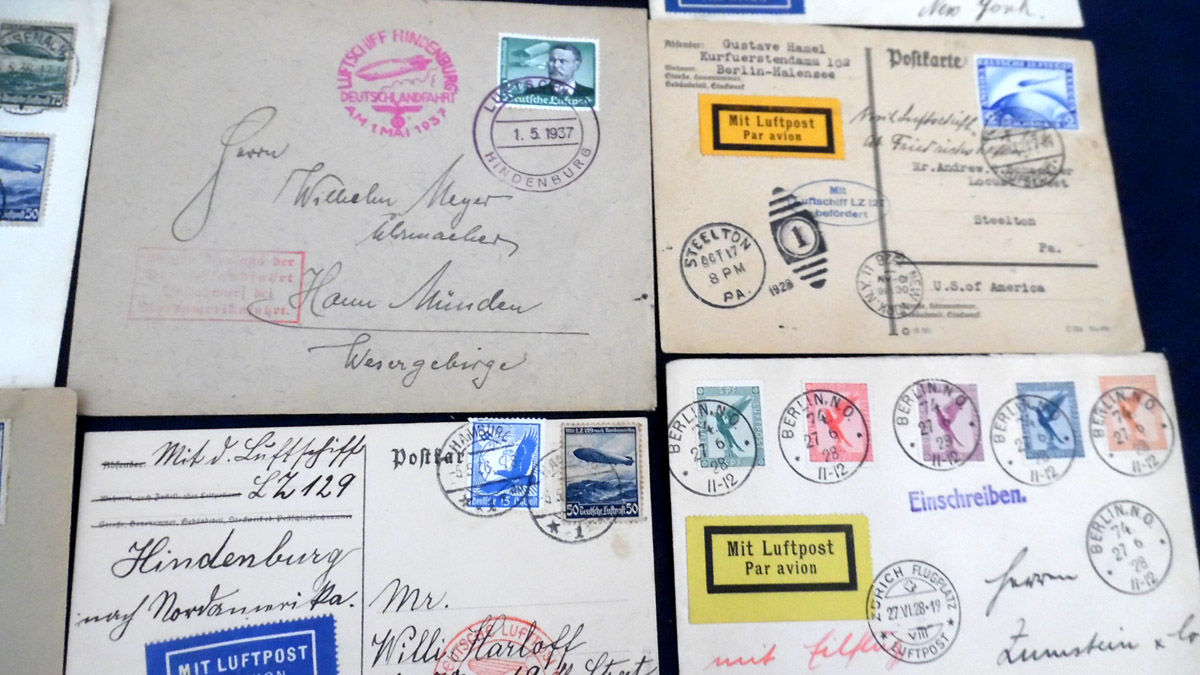 50
LUFTSCHIFF HINDENBURG
DEUTSCHLANDFAHRT
AM 1. MAI 1937
Deutsche Luftpost
1.5.1937
HINDENBURG
Herrn
Wilhelm Meyer
Uhrmacher
Hann Münden
Wesergebirge
New York.
Absender:
Gustave Hamel
Kurfuerstendamm 102
Berlin-Halensee
Postkarte
Mit Luftpost
Par avion
Mit Luftschiff
Mit
Luftschiff LZ 127
befördert
Mr. Andrew
Locust Street
Steelton
Pa.
U.S. of America
STEELTON
OCT 17
8 PM
PA.
1928
1
Absender:
Mit d. Luftschiff
LZ 129
Hindenburg
nach Nordamerika.
MIT LUFTPOST
Postkar
HAMBURG
Deutsche Luftpost
50 Deutsche Luftpost 50
1
Mr.
Willi Harloff
DEUTSCHE LUFTPOST
Street
BERLIN.N.O.
74
27 6
28
11-12
BERLIN.N.O.
74
27 6
28
11-12
BERLIN.N.O.
74
27 6
28
11-12
BERLIN.N.O.
74
27 6
28
11-12
BERLIN.N.O.
74
27 6
28
11-12
Einschreiben.
BERLIN.N.O.
74
27 6
28
11-12
Mit Luftpost
Par avion
ZÜRICH FLUGPLATZ
27.VI.28-19
VIII
LUFTPOST
mit Eilflug
Herren
Zumstein & Co